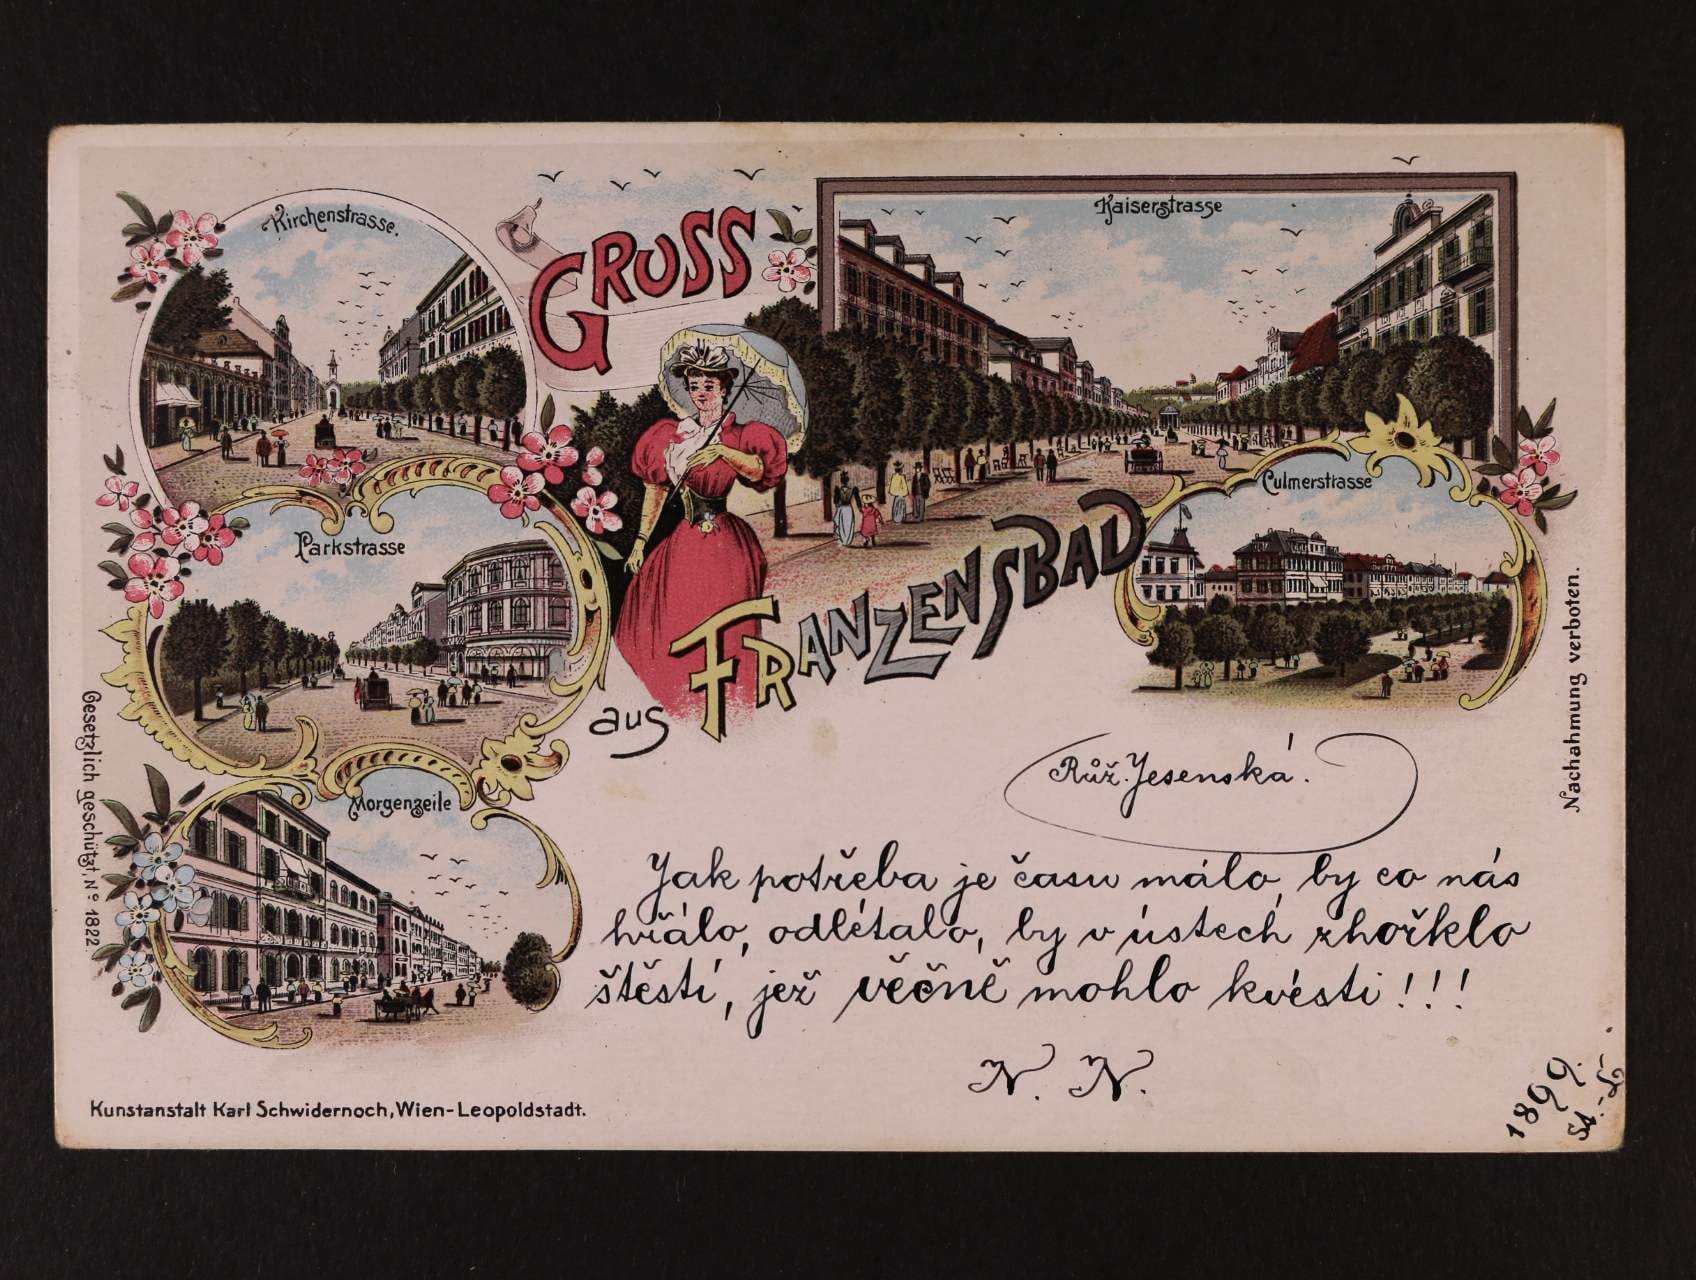 Kirchenstrasse.
GRUSS
Kaiserstrasse
Parkstrasse
Culmerstrasse
aus FRANZENSBAD
Morgenzeile
Růž. Jesenská.
Jak potřeba je času málo, by co nás
hřálo, odlétalo, by v ústech zhořklo
štěstí, jež věčně mohlo kvésti!!!
N. N.
1899.
Gesetzlich geschützt, Nº 1822
Nachahmung verboten.
Kunstanstalt Karl Schwidernoch, Wien-Leopoldstadt.